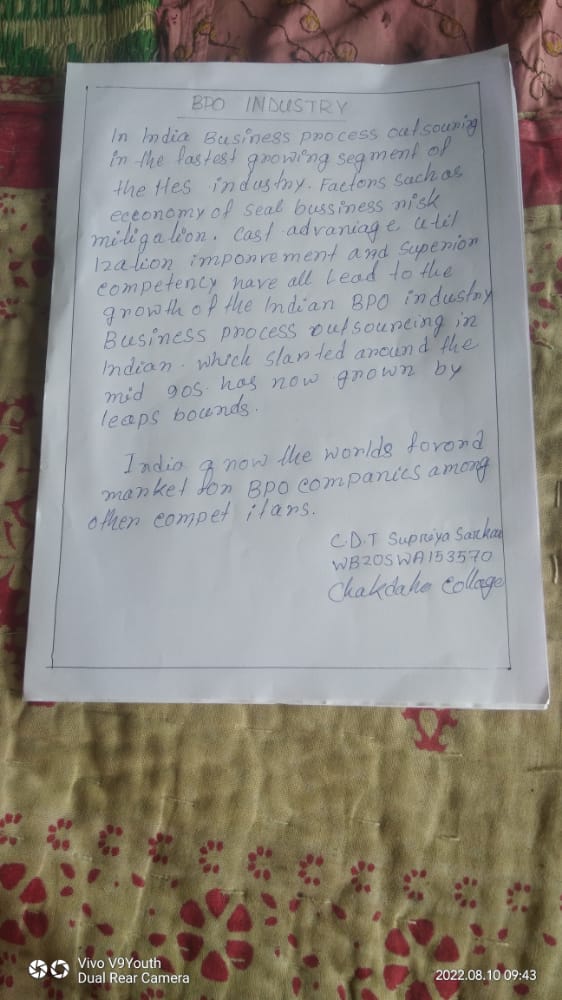 BPO INDUSTRY
In India Business process outsouring
in the fastest growing segment of
the Ites industry. Factons such as
ecconomy of seal bussiness risk
mitigation. Cast advantage util
ization imporvement and superior
competency have all lead to the
growth of the Indian BPO industry
Business process outsourcing in
Indian. which started around the
mid 90s has now grown by
leaps bounds.
India g now the worlds forond
market for BPO companies among
other compet itars.
C.D.T Supriya Sarkar
WB20SWA153570
Chakdaha Collage
Vivo V9Youth
Dual Rear Camera
2022.08.10 09:43